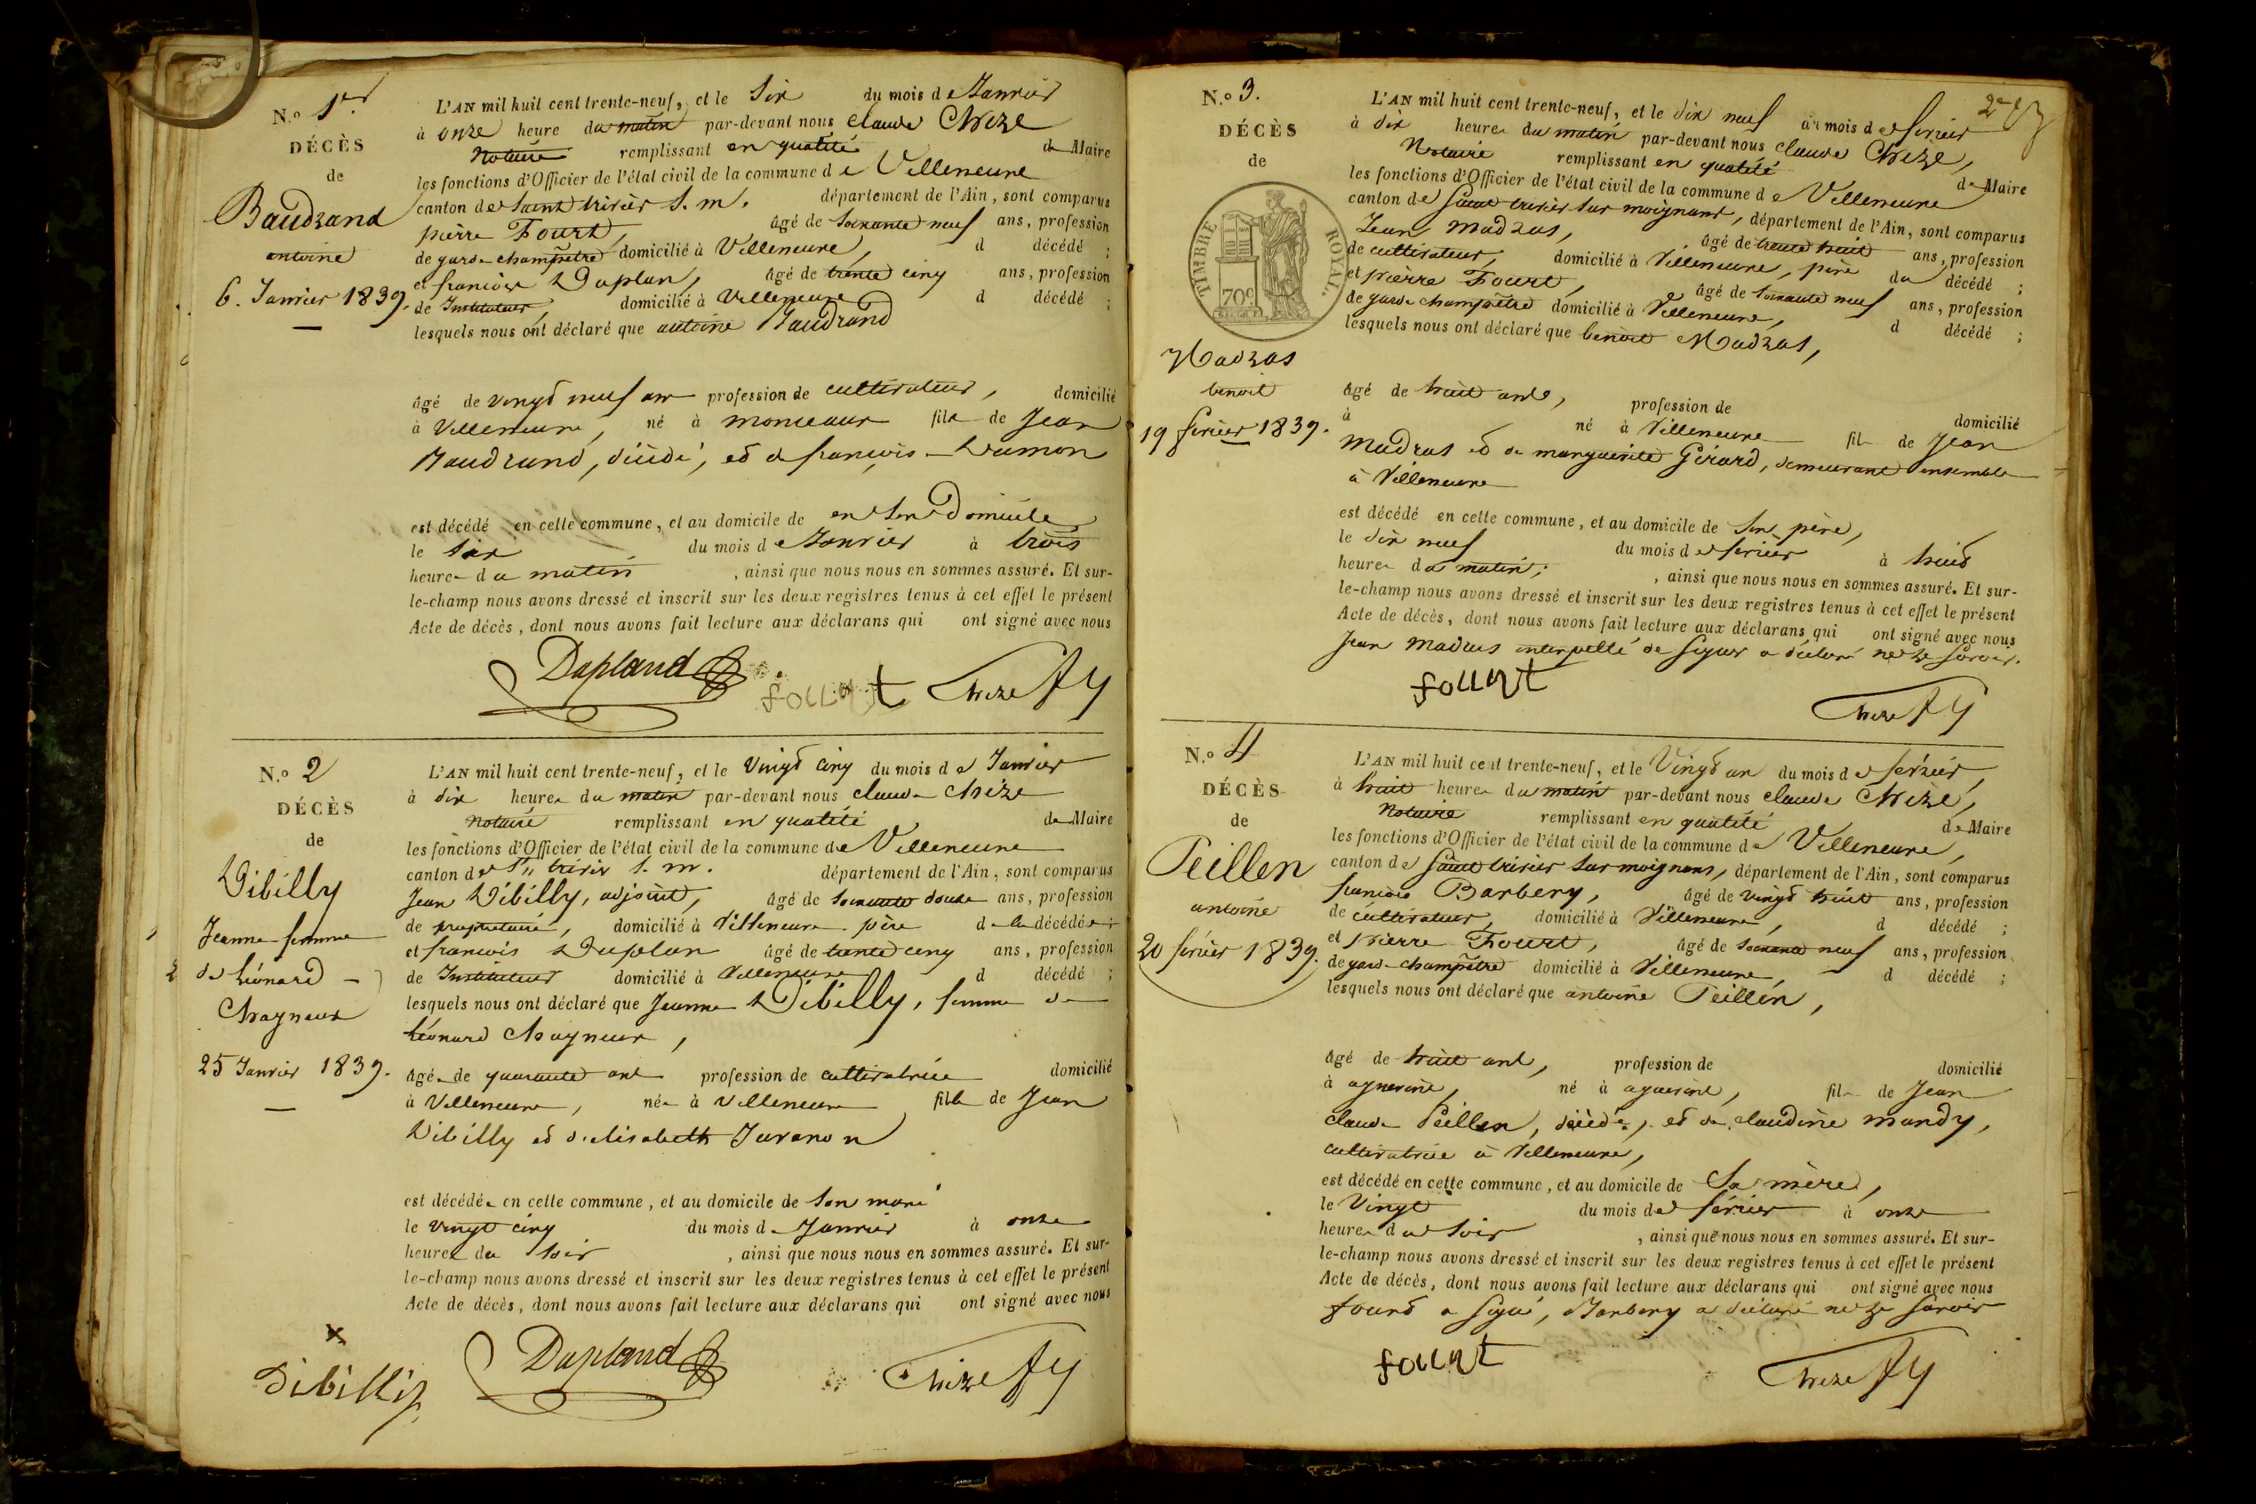 N.o 1er
DÉCÈS
de
Baudrand
antoine
6. Janvier 1839.
L'AN mil huit cent trente-neuf, et le Six du mois de Janvier
à onze heure du matin par-devant nous claude Chize
Notaire remplissant en qualité de Maire
les fonctions d'Officier de l'état civil de la commune de Villeneuve
canton de Saint trivier S. m. département de l'Ain, sont comparus
pierre Fourt, âgé de soixante neuf ans, profession
de garde champêtre domicilié à Villeneuve, d décédé ;
et françois Duplan, âgé de trente cinq ans, profession
de Instituteur, domicilié à Villeneuve d décédé ;
lesquels nous ont déclaré que antoine Baudrand
âgé de vingt neuf ans profession de cultivateur, domicilié
à Villeneuve, né à monceaux fils de Jean
Baudrand, décédé, et de françoise Dumon
est décédé en cette commune, et au domicile de en Son Domicile
le Six du mois de Janvier à trois
heures du matin , ainsi que nous nous en sommes assuré. Et sur-
le-champ nous avons dressé et inscrit sur les deux registres tenus à cet effet le présent
Acte de décès, dont nous avons fait lecture aux déclarans qui ont signé avec nous
Dupland fourt Chize
N.o 2
DÉCÈS
de
Dibilly
Jeanne femme
de Léonard
Chagneux
25 Janvier 1839.
L'AN mil huit cent trente-neuf, et le Vingt cinq du mois de Janvier
à dix heures du matin par-devant nous claude Chize
Notaire remplissant en qualité de Maire
les fonctions d'Officier de l'état civil de la commune de Villeneuve
canton de St trivier S. m. département de l'Ain, sont comparus
Jean Dibilly, adjoint, âgé de soixante douze ans, profession
de propriétaire, domicilié à Villeneuve père de la décédée ;
et françois Duplan âgé de trente cinq ans, profession
de Instituteur domicilié à Villeneuve d décédé ;
lesquels nous ont déclaré que Jeanne Dibilly, femme de
Léonard Chagneux,
âgée de quarante ans profession de cultivatrice domicilié
à Villeneuve, née à Villeneuve fille de Jean
Dibilly et d'elisabeth Juvanon
est décédée en cette commune, et au domicile de Son mari
le vingt cinq du mois de Janvier à onze
heures du Soir , ainsi que nous nous en sommes assuré. Et sur-
le-champ nous avons dressé et inscrit sur les deux registres tenus à cet effet le présent
Acte de décès, dont nous avons fait lecture aux déclarans qui ont signé avec nous
Dibilly Dupland Chize
2e
N.o 3.
DÉCÈS
de
TIMBRE ROYAL.
70c
Madras
benoit
19 février 1839.
L'AN mil huit cent trente-neuf, et le dix neuf du mois de février
à dix heures du matin par-devant nous claude Chize,
Notaire remplissant en qualité de Maire
les fonctions d'Officier de l'état civil de la commune de Villeneuve
canton de Saint trivier Sur moignans, département de l'Ain, sont comparus
Jean Madras, âgé de trente huit ans, profession
de cultivateur, domicilié à Villeneuve, père du décédé ;
et pierre Fourt, âgé de soixante neuf ans, profession
de garde champêtre domicilié à Villeneuve, d décédé ;
lesquels nous ont déclaré que benoit Madras,
âgé de huit ans, profession de domicilié
à né à Villeneuve fils de Jean
Madras et de marguerite Gérard, demeurant ensemble
à Villeneuve
est décédé en cette commune, et au domicile de Son père,
le dix neuf du mois de février à huit
heures du matin; , ainsi que nous nous en sommes assuré. Et sur-
le-champ nous avons dressé et inscrit sur les deux registres tenus à cet effet le présent
Acte de décès, dont nous avons fait lecture aux déclarans qui ont signé avec nous
Jean Madras interpellé de Signer a déclaré ne le Savoir.
fourt Chize
N.o 4
DÉCÈS
de
Peillen
antoine
20 février 1839.
L'AN mil huit cent trente-neuf, et le Vingt un du mois de février,
à huit heures du matin par-devant nous claude Chize,
Notaire remplissant en qualité de Maire
les fonctions d'Officier de l'état civil de la commune de Villeneuve,
canton de Saint trivier Sur moignans, département de l'Ain, sont comparus
françois Barbery, âgé de vingt huit ans, profession
de cultivateur, domicilié à Villeneuve, d décédé ;
et pierre Fourt, âgé de soixante neuf ans, profession
de garde champêtre domicilié à Villeneuve, d décédé ;
lesquels nous ont déclaré que antoine Peillen,
âgé de huit ans, profession de domicilié
à né à fils de Jean
claude Peillen, décédé, et de claudine mandy,
cultivatrice à Villeneuve,
est décédé en cette commune, et au domicile de Sa mère,
le Vingt du mois de février à onze
heures du Soir , ainsi que nous nous en sommes assuré. Et sur-
le-champ nous avons dressé et inscrit sur les deux registres tenus à cet effet le présent
Acte de décès, dont nous avons fait lecture aux déclarans qui ont signé avec nous
fourt a signé, Barbery a déclaré ne le Savoir
fourt Chize